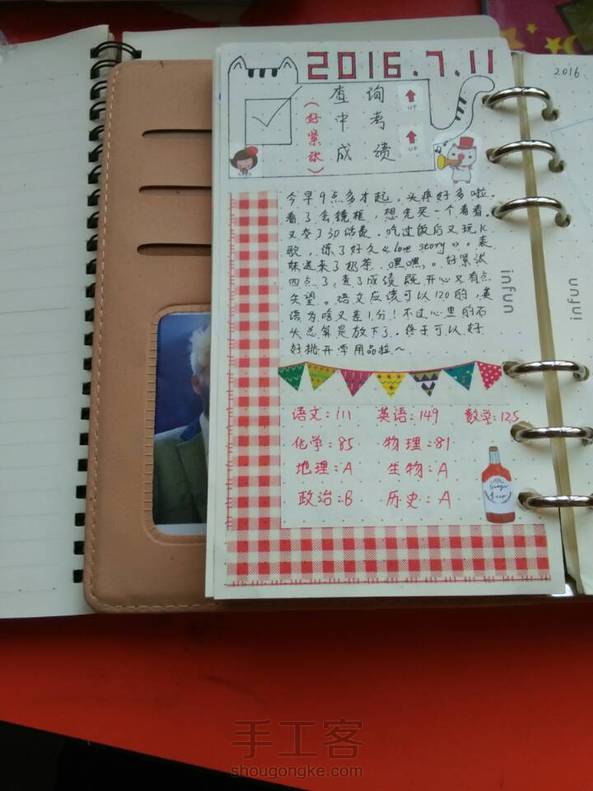 2016.7.11
查询 UP
中考
成绩 UP
(好紧张)
今早9点多才起。头疼好多啦。
看了会镜框，想先买一个看看。
又了30话费。吃过饭后又玩K
歌，练了好久《Love Story》。表
妹送来了奶茶，嘿嘿。。好紧张
四点了，查了成绩既开心又有点
失望。语文应该可以120的，英
语为啥又差1分！不过心里的石
头总算是放下了。终于可以好
好挑开学用品啦~
语文：111 英语：149 数学：125
化学：85 物理：81
地理：A 生物：A
政治：B 历史：A
infun
2016
unfui
手工客
shougongke.com